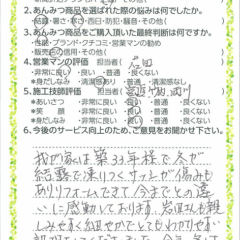 2.あんみつ商品を選ばれた際の悩みは何でしたか。
・結露・暑さ・寒さ・西日・防犯・騒音・その他(
3.あんみつ商品をご購入頂いた最終判断は何ですか。
・性能・ブランド・クチコミ・営業マンの勧め
・販売店の信用・その他(
4.営業マンの評価 担当者(
・非常に良い・良い・普通・良くない
★身だしなみ ・清潔 あり・普通・清潔感なし
5.施工技師評価 担当者(
★あいさつ ・非常に良い・良い・普通・良くない
★笑 顔 ・非常に良い・良い・普通・良くない
★身だしなみ ・非常に良い・良い・普通・良くない
6.今後のサービス向上のため、ご意見をお聞かせ下さい。
我が家は築33年程で冬が
結露で凍りつくサッシが傷みも
ありリフォームできて今までとの違
いに感動しております。岩辺さんも親
しみやすく細やかでとてもわかりやすい